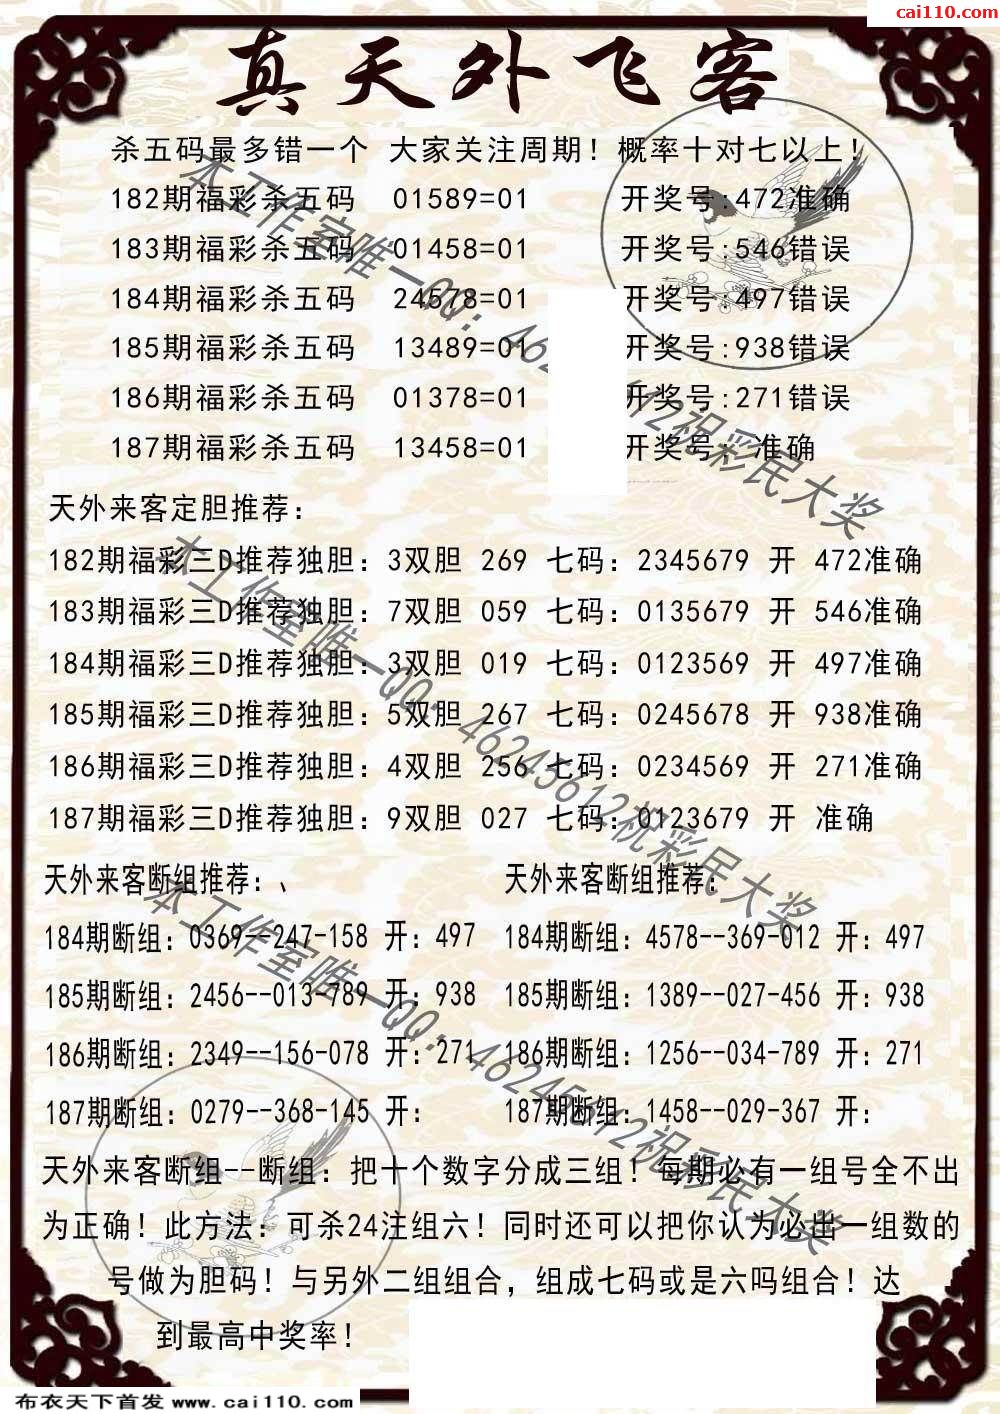 cai110.com
真天外飞客
杀五码最多错一个 大家关注周期！概率十对七以上！
182期福彩杀五码 01589=01 开奖号:472准确
183期福彩杀五码 01458=01 开奖号:546错误
184期福彩杀五码 24578=01 开奖号:497错误
185期福彩杀五码 13489=01 开奖号:938错误
186期福彩杀五码 01378=01 开奖号:271错误
187期福彩杀五码 13458=01 开奖号: 准确
天外来客定胆推荐：
182期福彩三D推荐独胆：3双胆 269 七码：2345679 开 472准确
183期福彩三D推荐独胆：7双胆 059 七码：0135679 开 546准确
184期福彩三D推荐独胆：3双胆 019 七码：0123569 开 497准确
185期福彩三D推荐独胆：5双胆 267 七码：0245678 开 938准确
186期福彩三D推荐独胆：4双胆 256 七码：0234569 开 271准确
187期福彩三D推荐独胆：9双胆 027 七码：0123679 开 准确
天外来客断组推荐：、 天外来客断组推荐：
184期断组：0369--247-158 开：497 184期断组：4578--369-012 开：497
185期断组：2456--013-789 开：938 185期断组：1389--027-456 开：938
186期断组：2349--156-078 开：271 186期断组：1256--034-789 开：271
187期断组：0279--368-145 开： 187期断组：1458--029-367 开：
天外来客断组--断组：把十个数字分成三组！每期必有一组号全不出
为正确！此方法：可杀24注组六！同时还可以把你认为必出一组数的
号做为胆码！与另外二组组合，组成七码或是六吗组合！达
到最高中奖率！
本工作室唯一QQ：462 12祝彩民大奖
本工作室唯一QQ：46245612祝彩民大奖
本工作室唯一QQ：46245612祝彩民大奖
布衣天下首发 www.cai110.com